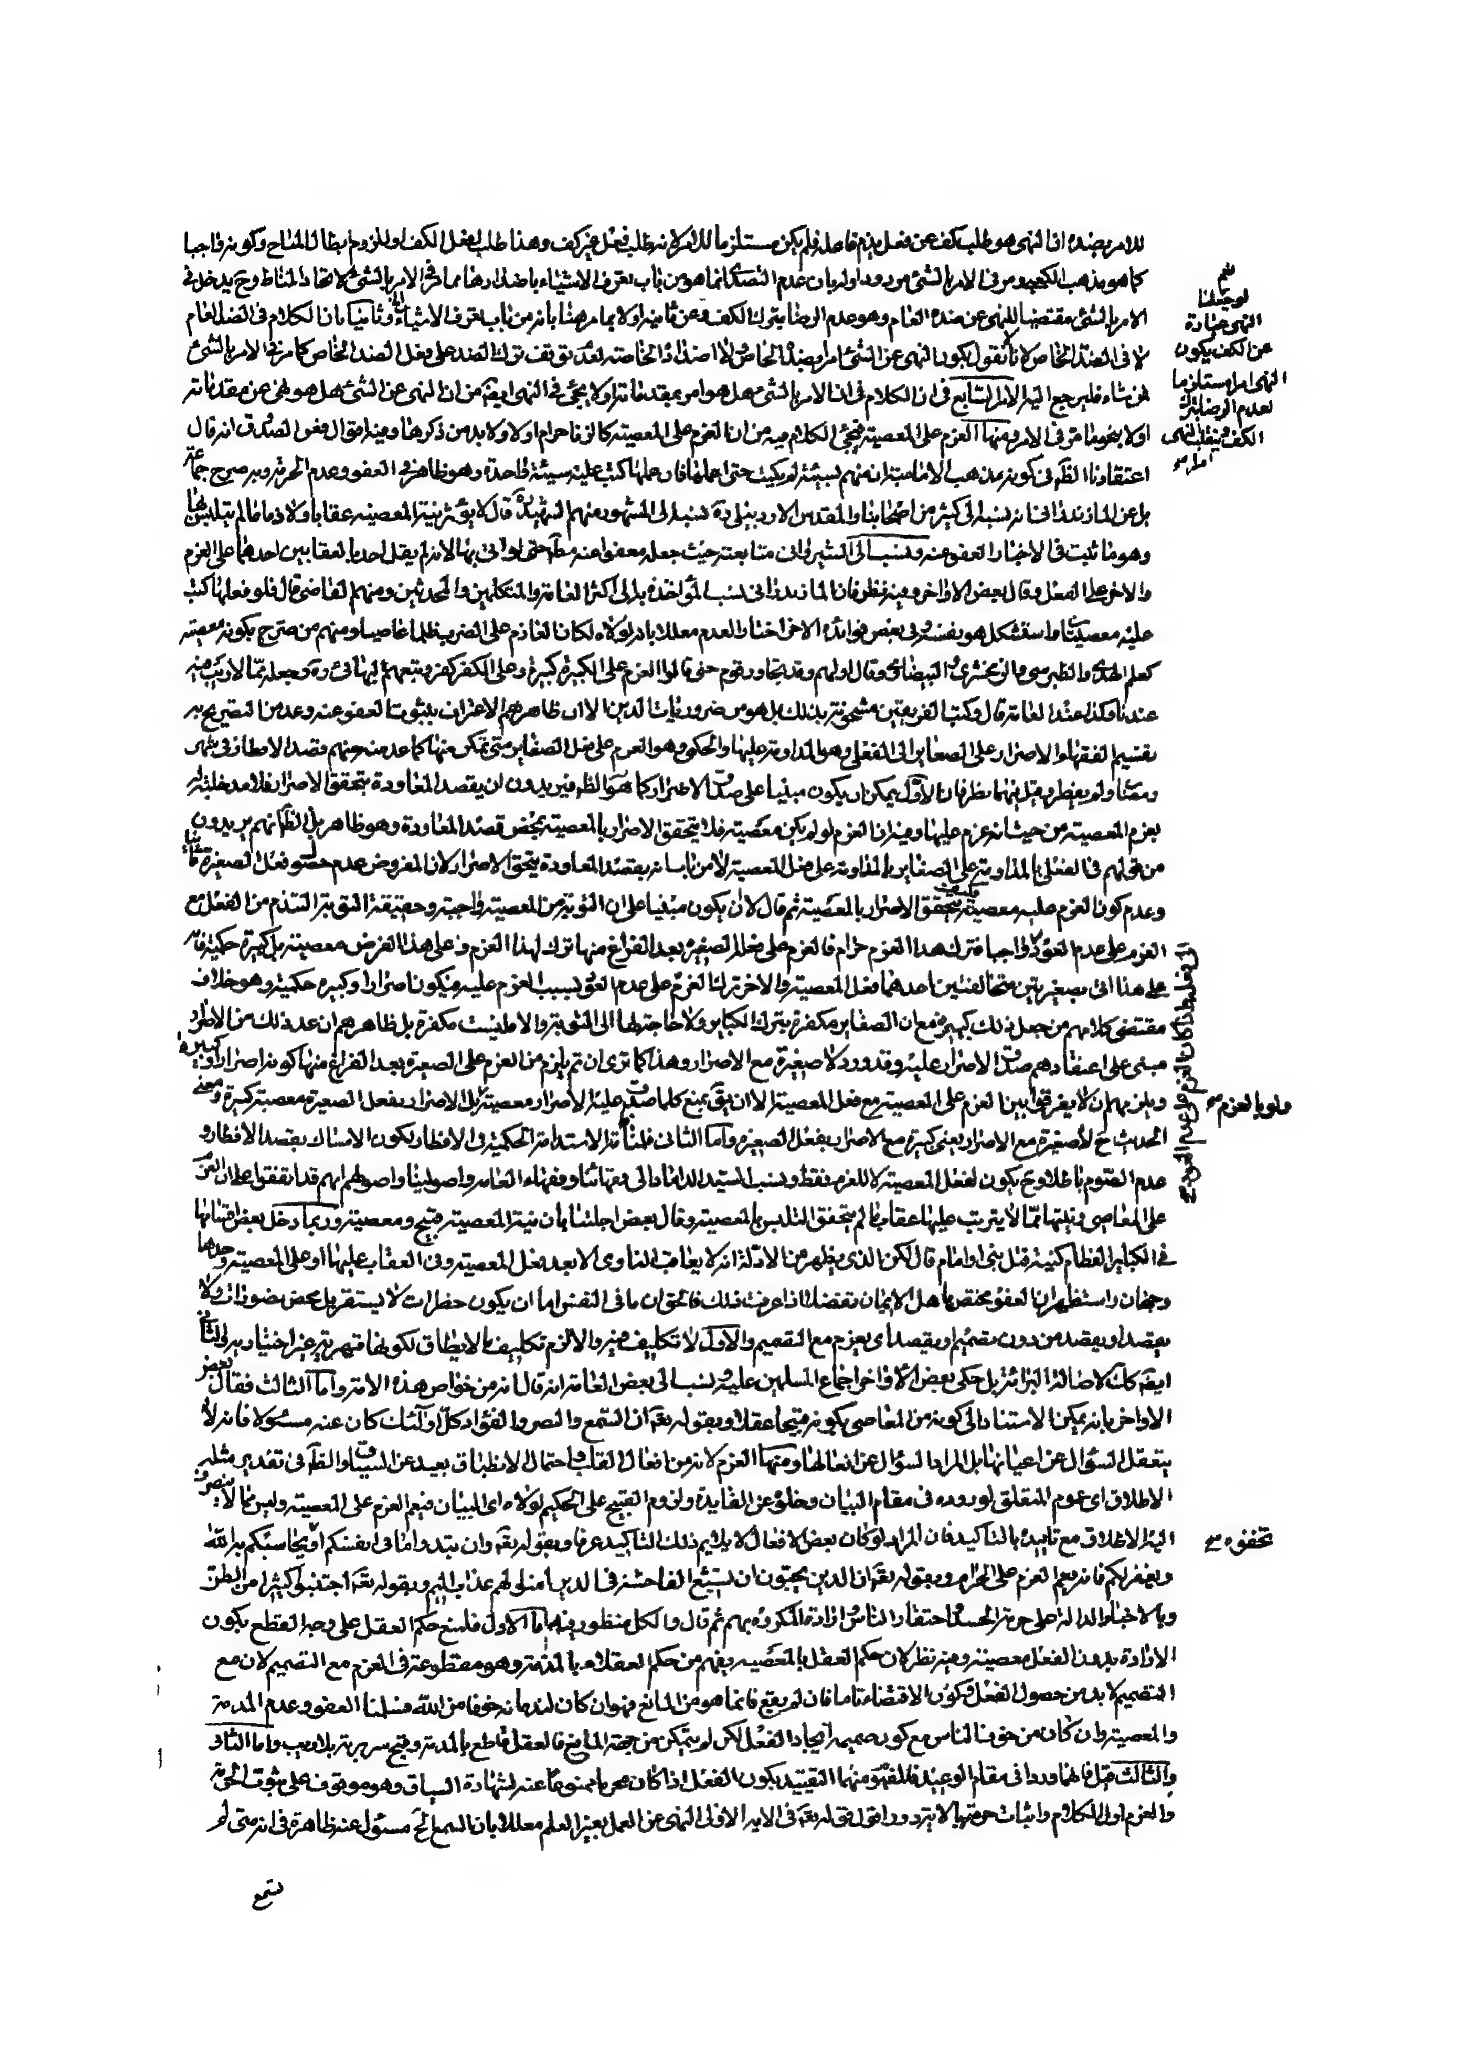 للامر بضده اذ النهى هو طلب كف عن فعل يذم فاعله فلم يكن مستلزما للامر لانه طلب فعل غير كف وهذا طلب لفعل الكف او للزوم ابطال المباح وكونه واجبا
كما هو مذهب الكعبى ومر فى الامر بالشئ مردود اوله بان عدم التصدى انما هو من باب تعرف الاشياء باضدادها مما مر فى الامر بالشئ لاتحاد المناط وح يدخل فى
الامر بالشئ مقتضيا للنهى عن ضده العام وهو عدم الرضا بترك الكف وعن ثانيه اولا بما مر هنا بانه من باب تعرف الاشياء وثانيا بان الكلام فى الضد العام
لا فى الضد الخاص لانا نقول بكون النهى عن الشئ امرا بضده الخاص ولا اضداده الخاصة لعدم توقف ترك الضد على فعل الضد الخاص كما مر فى الامر بالشئ
فمن شاء فليرجع اليه الامر السابع فى ان الكلام فى ان الامر بالشئ هل هو امر بمقدماته اولا يجئ فى النهى ايضه من ان النهى عن الشئ هل هو نهى عن مقدماته
اولا بنحو ما مر فى الامر ومنها العزم على المعصية فيجئ الكلام فيه من ان العزم على المعصية كالزنا حرام اولا ولا بد من ذكرها وفيه اقوال فعن الصدوق انه قال
اعتقادنا الظهر فى كونه مذهب الامامية ان منهم بسيئة لم يكتب حتى يعملها فان عملها كتب عليه سيئة واحدة وهو ظاهر فى العفو وعدم الحرمة وبه صرح جماعة
بل عن المازندرانى انه نسبه الى كثير من اصحابنا والمقدس الاردبيلى ره نسبه الى المشهور منهم الشهيد ره قال لا يؤثر نية المعصية عقابا ولا ذما ما لم يتلبس بها
وهو ما ثبت فى الاخبار العفو عنه ونسب الى الشيرازى متابعته حيث جعله معفوا عنه مطلقا حتى لو اتى بها لانه لم يقل احد بالعقابين احدهما على العزم
والاخر على الفعل وقال بعض الاواخر وفيه نظر فان المازندرانى نسب المؤاخذة به الى اكثر العامة والمتكلمين والمحدثين ومنهم القاضى قال فلو فعلها كتب
عليه معصيتان واستشكل هو بنفسه فى بعض فوائده الاخر اختار العدم معللا بانه لولاه لكان العازم على الضرب ظلما عاصيا ومنهم من صرح بكونه معصية
كعلم الهدى والطبرسى والزمخشرى والبيضاوى وقال اولهم وقد تجاوز قوم حتى قالوا العزم على الكبيرة كبيرة وعلى الكفر كفر وتبعهم البهائى ره وجعله مما لا ريب فيه
عندنا وكذا عند العامة قال وكتب الفريقين مشحونة بذلك بل هو من ضروريات الدين الا ان ظاهرهم الاعتراف بثبوت العفو عنه وعد من التصريح به
تقسيم الفقهاء الاصرار على الصغاير الى الفعلى وهو المداومة عليها والحكمى وهو العزم على فعل الصغاير متى تمكن منها كما عد منه جنهم قصد الافطار فى شهر
رمضان ولو لم يفطر وقيل فيهما نظر فان الاول يمكن ان يكون مبنيا على صدق الاصرار كما هو الظهر فيريدون ان يقصد المعاودة يتحقق الاصرار فلا مدخلية له
بعزم المعصية من حيث انه عزم عليها وفيه ان العزم لو لم يكن معصية فلا يتحقق الاصرار بالمعصية بمحض قصد المعاودة وهو ظاهر بل الظ انهم يريدون
من قولهم فى الفعلى المداومة على الصغاير المداومة على فعل المعصية لا من باب انه بقصد المعاودة يتحقق الاصرار لان المفروض عدم حصول فعل الصغيرة ثانيا
وعدم كون العزم عليه معصية فكيف يتحقق الاصرار بالمعصية ثم قال لان يكون مبنيا على ان التوبة من المعصية واجبة وحقيقة التوبة الندم من الفعل مع
العزم على عدم العود واجبا فترك هذا العزم حرام فالعزم على فعل الصغيرة بعد الفراغ منها ترك لهذا العزم وعلى هذا الغرض معصية بل كبيرة حكمية فانه
على هذا اتى بصغيرتين متخالفتين احدهما فعل المعصية والاخر ترك العزم على عدم العود بسبب العزم عليه فيكون اصرارا وكبيرة حكمية وهو خلاف
مقتضى كلامهم من جعل ذلك كبيرة مع ان الصغاير مكفرة بترك الكباير ولا حاجة لها الى التوبة والا فليست مكفرة بل ظاهرهم ان عد ذلك من الاصرار
مبنى على اعتقادهم صدق الاصرار عليه وقد ورد لا صغيرة مع الاصرار وهذا كما ترى ان تم يلزم من العزم على الصغيرة بعد الفراغ منها كونه اصرارا وكبيرة
ويلزمهم ان لا يفرقوا بين العزم على المعصية مع فعل المعصية الا ان يق بمنع كلما صدق عليه الاصرار معصية بل الاصرار بفعل الصغيرة معصية كبيرة ومعنى
الحديث ح لا صغيرة مع الاصرار يعنى كبيرة مع الاصرار بفعل الصغيرة واما الثانى فلمنافاته الاستدامة الحكمية فى الافطار فيكون الامساك بقصد الافطار و
عدم الصوم باطلا وح يكون لفعل المعصية لا للعزم فقط ونسب السيد الداماد الى فقهائنا وفقهاء العامة واصوليينا واصوليهم انهم قد اتفقوا على ان العزم
على المعاصى ونيتها مما لا يترتب عليها عقاب ما لم يتحقق التلبس بالمعصية وقال بعض اجلتنا بان نية المعصية قبيح ومعصية وربما دخل بعض اقسامها
فى الكبائر العظام كنية قتل نبى او امام قال لكن الذى يظهر من الادلة انه لا يعاقب الناوى الا بعد فعل المعصية وفى العقاب عليها او على المعصية وحدها
وجهان واستظهر ان العفو مختص باهل الايمان تفضلا اذا عرفت ذلك فالحق ان ما فى النفس اما ان يكون خطرات لا يستقر بل محض تصورات ولا
يقصد او يقصد من دون تصميم او يقصد اى يعزم مع التصميم والاول لا تكليف فيه والا لزم تكليف ما لا يطاق لكونها قهرية غير اختيارية والثانى
ايضه كك لاصالة البرائة بل حكى بعض الاواخر اجماع المسلمين عليه ونسب الى بعض العامة انه قال انه من خواص هذه الامة واما الثالث فقال بعض
الاواخر بانه يمكن الاستناد الى كونه من المعاصى بكونه قبيحا عقلا وبقوله تعه ان السمع والبصر والفؤاد كل اولئك كان عنه مسئولا فانه لا
يتعقل السؤال عن اعيانها بل المراد السؤال عن افعالها ومنها العزم لانه من افعال القلب واحتمال الانطباق بعيد عن السياق والظ فى تقدير مثله
الاطلاق اى عموم المتعلق لوروده فى مقام البيان وخلوه عن الفايدة ولزوم القبيح على الحكيم لولاه اى البيان فيعم العزم على المعصية وليس مما لا ينصرف
اليه الاطلاق مع تاييده بالتاكيد فان المراد لو كان بعض الافعال لا يلايم ذلك التاكيد عرفا وبقوله تعه وان تبدوا ما فى انفسكم او يحاسبكم به الله
ويغفر لكم فانه يعم العزم على الحرام وبقوله تعه ان الذين يحبون ان تشيع الفاحشة فى الذين امنوا لهم عذاب اليم وبقوله تعه اجتنبوا كثيرا من الظن
وبالاخبار الدالة على حرمة الحسد واحتقار الناس وارادة المكروه بهم ثم قال والكل منظور فيها اما الاول فلمنع حكم العقل على وجه القطع بكون
الارادة بدون الفعل معصية وفيه نظر لان حكم العقل بالمعصية يفهم من حكم العقلاء بالمذمة وهو مقطوعة فى العزم مع التصميم لان مع
التصميم لا بد من حصول الفعل وكون الاقتضاء تاما فان لم يقع فانما هو من المانع فهو ان كان لندمانه خوفا من الله فسلمنا العفو وعدم المذمة
والمعصية وان كان من خوف الناس مع كون صميمه ايجاد الفعل لكن لم يتمكن من جهة المانع فالعقل قاطع بالمذمة وقبح سريرته بلا ريب واما الثانى
والثالث قيل فانهما وردا فى مقام الوعيد فالمفهوم منهما التقييد بكون الفعل اذا كان محرما ممنوعا عنه لشهادة السياق وهو موقوف على ثبوت الحرمة
والعزم اول الكلام واثبات حرمتها لا يترد ورا اقول قوله تعه فى الاية الاولى النهى عن العمل بغير العلم معللا بان السمع الخ مسئول عنه ظاهرة فى انه متى لم
تستمع
نعم
لو جعلنا
النهى عبارة
عن الكف يكون
النهى امرا مستلزما
لعدم الرضا بترك
الكف فينقلب النهى
امرا
ولو بالعزم
تخفوه